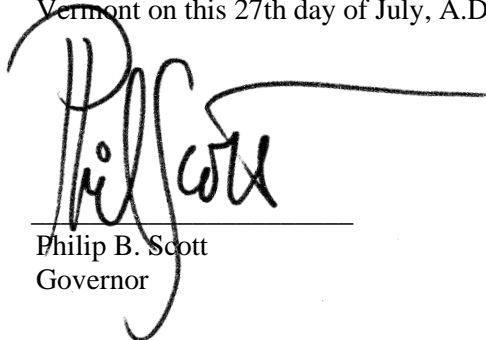 Vermont on this 27th day of July, A.D
Phil Scott
Philip B. Scott
Governor